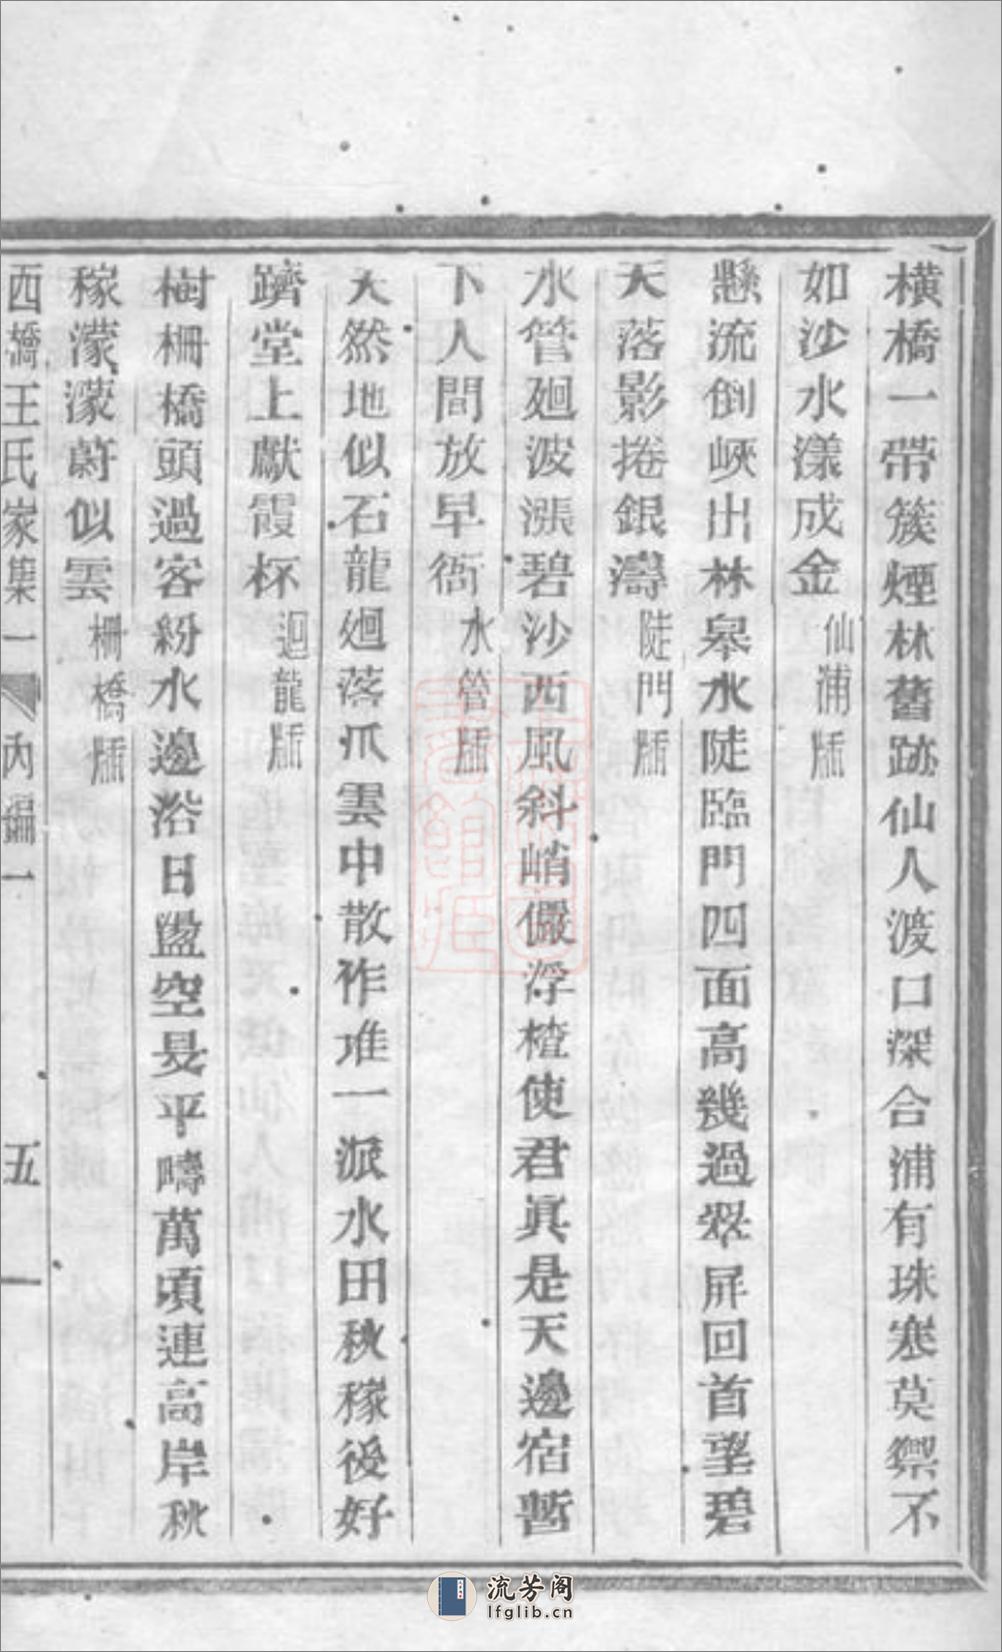 橫橋一帶簇煙林舊跡仙人渡口深合浦有珠塞莫禦不
如沙水漾成金仙浦㳍
懸流倒峽出林皋水陡臨門四面高幾過翠屏回首望碧
天落影捲銀濤陡門㳍
水管廻波漲碧沙西風斜峭儼浮楂使君眞是天邊宿暫
下人間放早衙水管㳍
天然地似石龍廻落爪雲中散祚堆一派水田秋稼後好
躋堂上獻霞杯迴龍㳍
樹柵橋頭過客紛水邊浴日盪空旻平疇萬頃連高岸秋
稼濛濛蔚似雲柵橋㳍
西橋王氏家集一 內編一 五
流芳阁
lfglib.cn